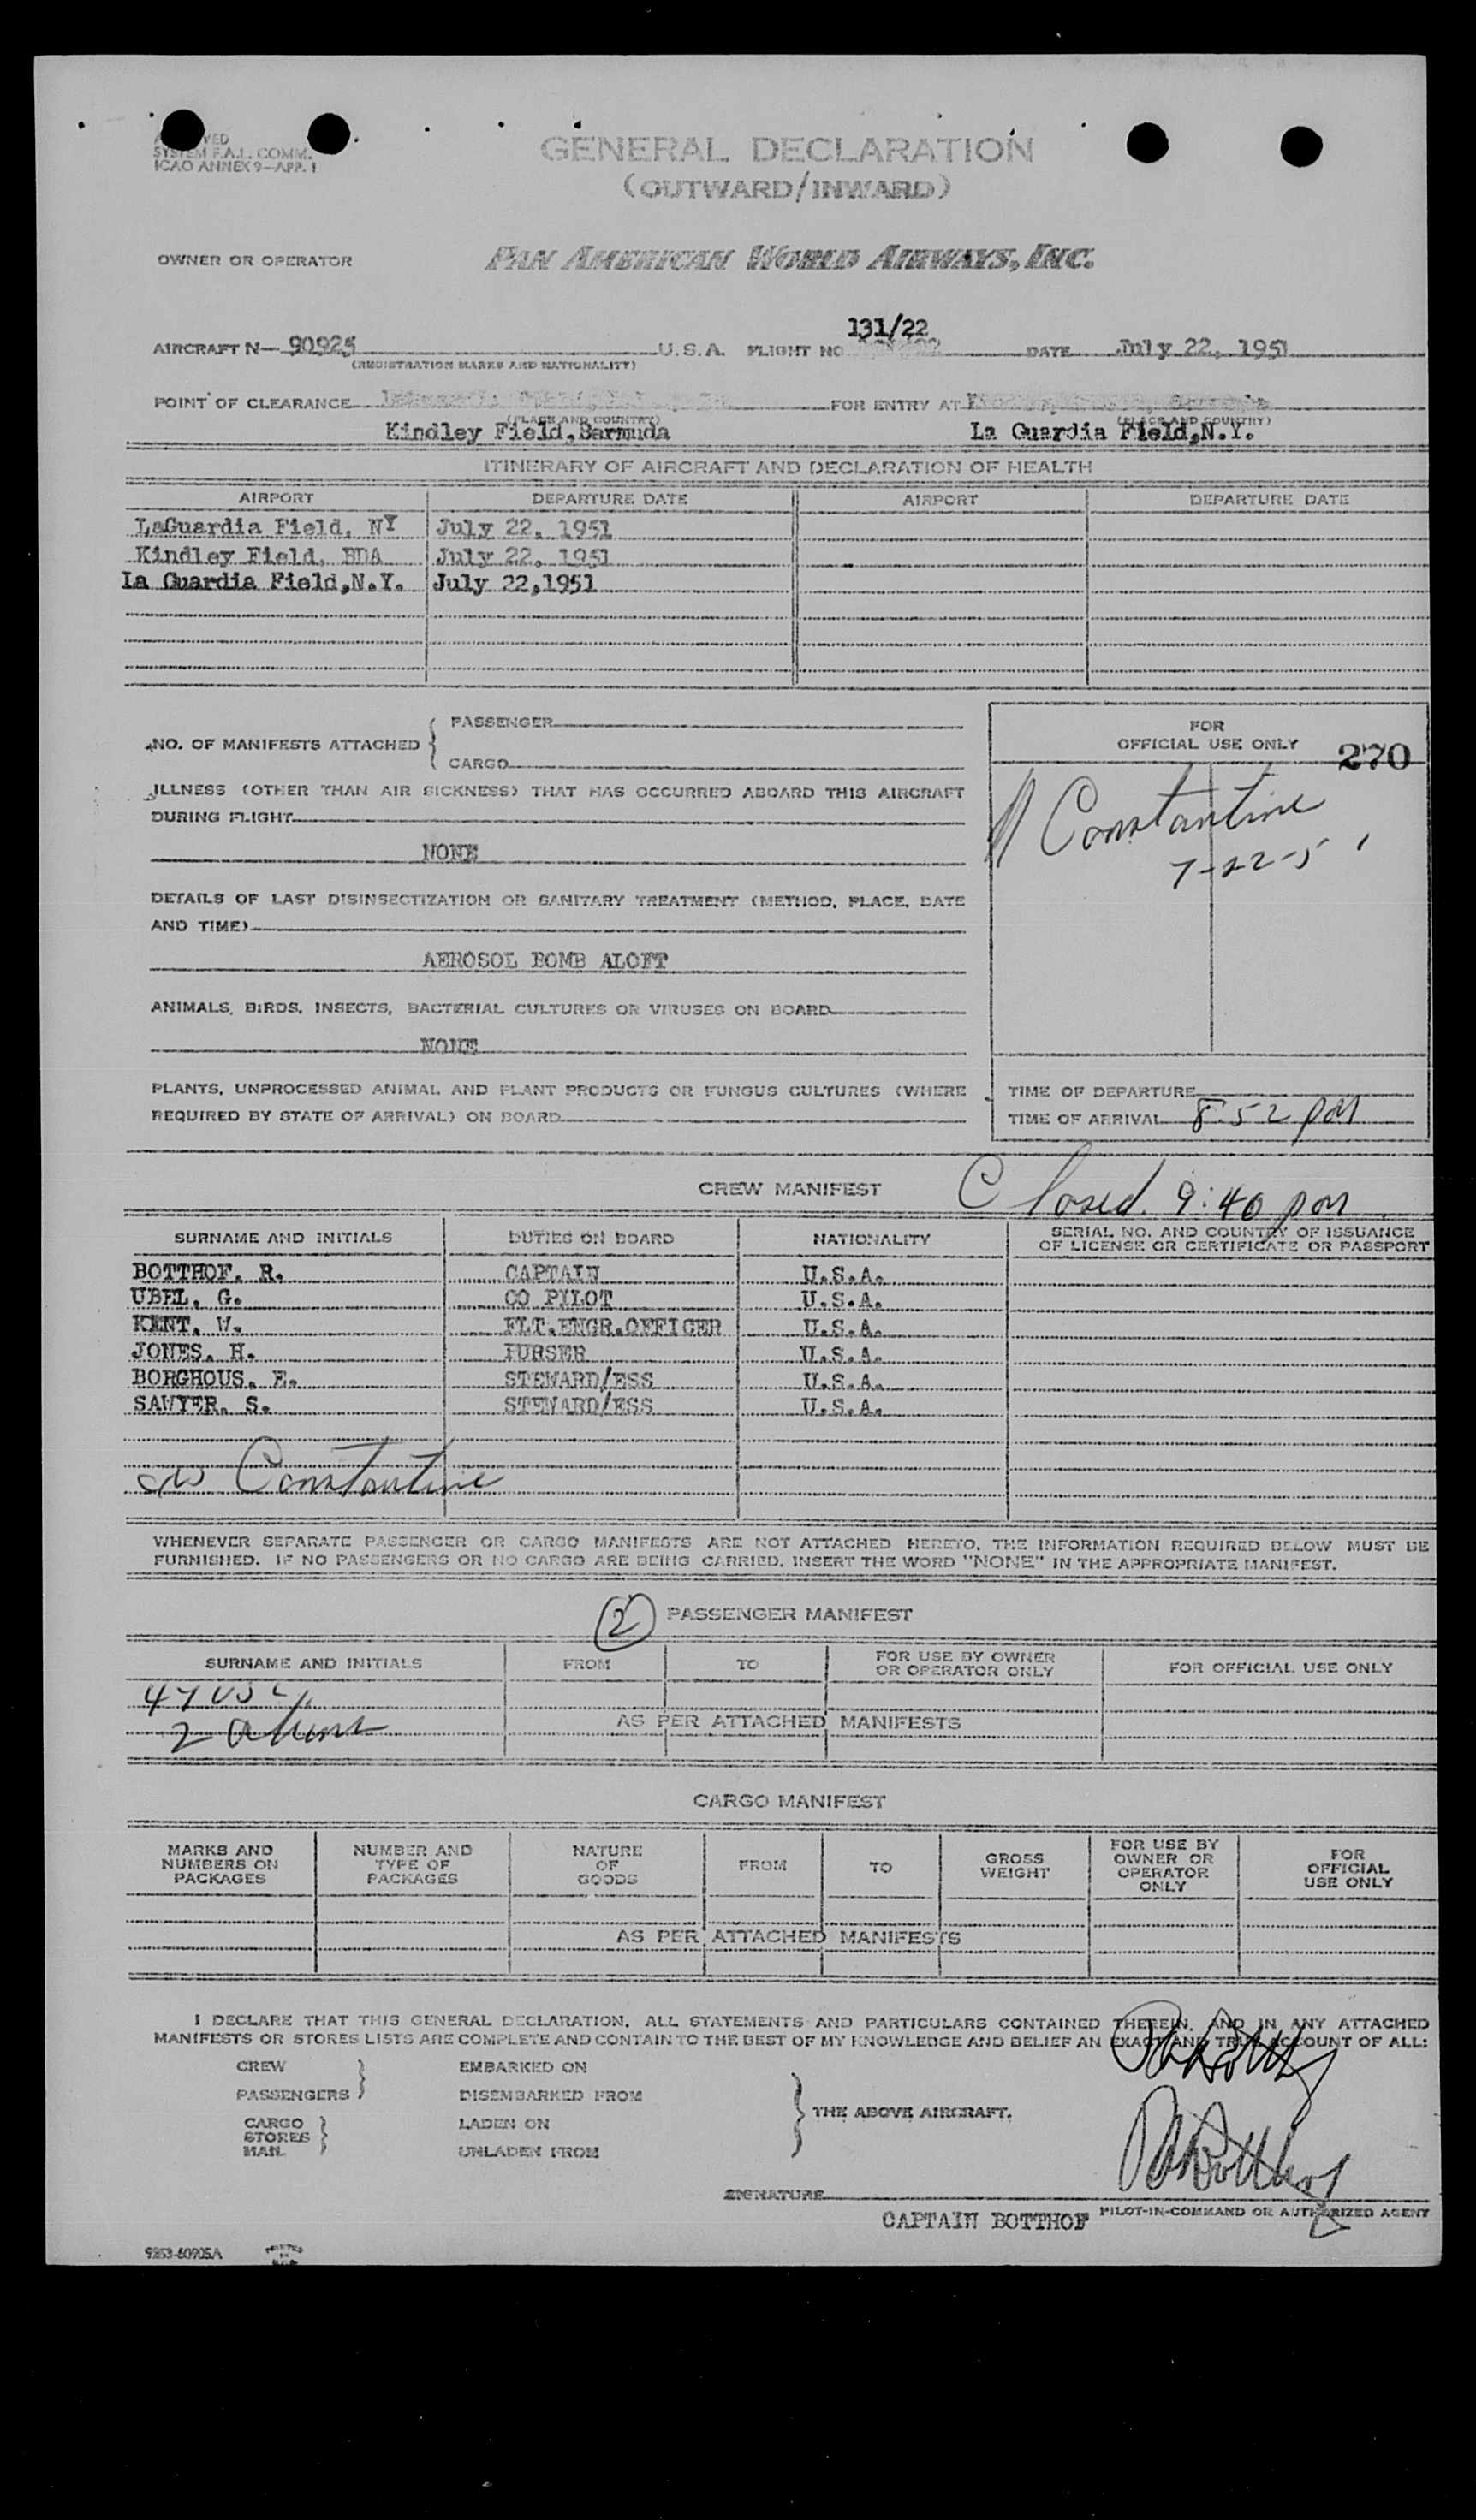 SYSTEM F.A.L. COMM.
ICAO ANNEX 9—APP. 1
GENERAL DECLARATION
(OUTWARD/INWARD)
OWNER OR OPERATOR PAN AMERICAN WORLD AIRWAYS, INC.
131/22
AIRCRAFT N— 90925 U.S.A. FLIGHT NO DATE July 22, 1951
(REGISTRATION MARKS AND NATIONALITY)
POINT OF CLEARANCE FOR ENTRY AT
(PLACE AND COUNTRY) (PLACE AND COUNTRY)
Kindley Field,Bermuda La Guardia Field,N.Y.
ITINERARY OF AIRCRAFT AND DECLARATION OF HEALTH
AIRPORT DEPARTURE DATE AIRPORT DEPARTURE DATE
LaGuardia Field, NY July 22, 1951
Kindley Field, BDA July 22, 1951
La Guardia Field,N.Y. July 22,1951
NO. OF MANIFESTS ATTACHED { PASSENGER
CARGO
FOR
OFFICIAL USE ONLY 270
ILLNESS (OTHER THAN AIR SICKNESS) THAT HAS OCCURRED ABOARD THIS AIRCRAFT
DURING FLIGHT
Constantine
7-22-51
NONE
DETAILS OF LAST DISINSECTIZATION OR SANITARY TREATMENT (METHOD, PLACE, DATE
AND TIME)
AEROSOL BOMB ALOFT
ANIMALS, BIRDS, INSECTS, BACTERIAL CULTURES OR VIRUSES ON BOARD
NONE
PLANTS, UNPROCESSED ANIMAL AND PLANT PRODUCTS OR FUNGUS CULTURES (WHERE
REQUIRED BY STATE OF ARRIVAL) ON BOARD
TIME OF DEPARTURE
TIME OF ARRIVAL 8:52 PM
CREW MANIFEST Closed. 9:40 pm
SURNAME AND INITIALS DUTIES ON BOARD NATIONALITY SERIAL NO. AND COUNTRY OF ISSUANCE
OF LICENSE OR CERTIFICATE OR PASSPORT
BOTTHOF, R. CAPTAIN U.S.A.
UBEL, G. CO PILOT U.S.A.
KENT, W. FLT.ENGR.OFFICER U.S.A.
JONES, H. PURSER U.S.A.
BORGHOUS, E. STEWARD/ESS U.S.A.
SAWYER, S. STEWARD/ESS U.S.A.
Constantine
WHENEVER SEPARATE PASSENGER OR CARGO MANIFESTS ARE NOT ATTACHED HERETO, THE INFORMATION REQUIRED BELOW MUST BE
FURNISHED. IF NO PASSENGERS OR NO CARGO ARE BEING CARRIED, INSERT THE WORD "NONE" IN THE APPROPRIATE MANIFEST.
2 PASSENGER MANIFEST
SURNAME AND INITIALS FROM TO FOR USE BY OWNER
OR OPERATOR ONLY FOR OFFICIAL USE ONLY
47 USC
2 Aliens
AS PER ATTACHED MANIFESTS
CARGO MANIFEST
MARKS AND
NUMBERS ON
PACKAGES
NUMBER AND
TYPE OF
PACKAGES
NATURE
OF
GOODS
FROM
TO
GROSS
WEIGHT
FOR USE BY
OWNER OR
OPERATOR
ONLY
FOR
OFFICIAL
USE ONLY
AS PER ATTACHED MANIFESTS
I DECLARE THAT THIS GENERAL DECLARATION, ALL STATEMENTS AND PARTICULARS CONTAINED THEREIN, AND IN ANY ATTACHED
MANIFESTS OR STORES LISTS ARE COMPLETE AND CONTAIN TO THE BEST OF MY KNOWLEDGE AND BELIEF AN EXACT AND TRUE ACCOUNT OF ALL:
CREW EMBARKED ON
PASSENGERS DISEMBARKED FROM
THE ABOVE AIRCRAFT.
CARGO LADEN ON
STORES
MAIL UNLADEN FROM
RABotthof
SIGNATURE
CAPTAIN BOTTHOF PILOT-IN-COMMAND OR AUTHORIZED AGENT
9253-60905A